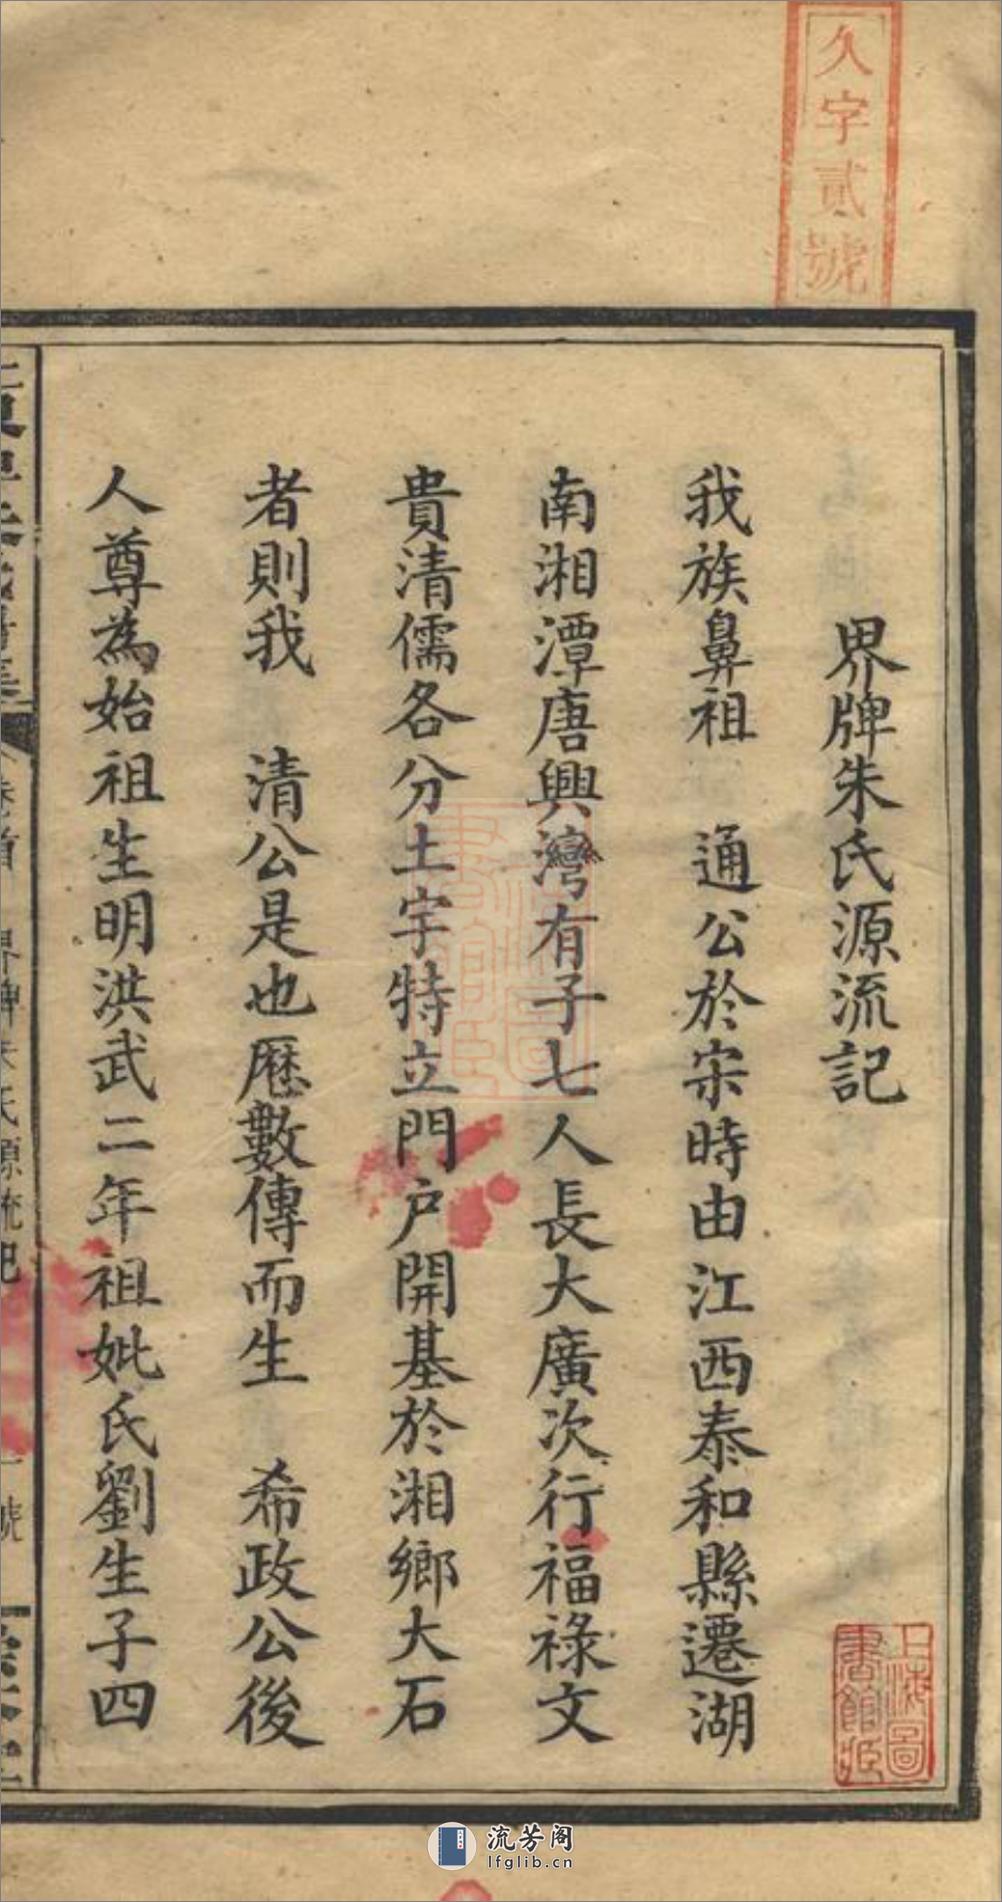 久字貳號
界牌朱氏源流記
我族鼻祖　通公於宋時由江西泰和縣遷湖
南湘潭唐興灣有子七人長大廣次行福祿文
貴清儒各分土宇特立門户開基於湘鄉大石
者則我　清公是也歷數傳而生　希政公後
人尊為始祖生明洪武二年祖妣氏劉生子四
界牌朱氏源流記
上海圖
書館藏
流芳阁
lfglib.cn